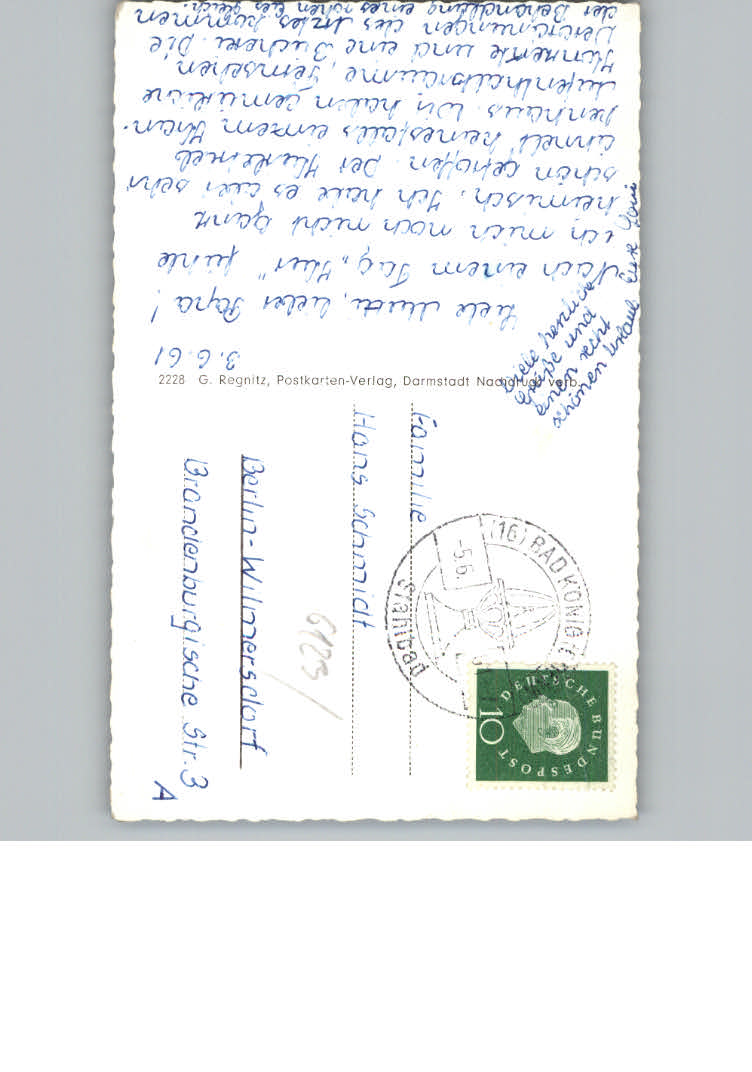 3.6.61
Liebe Mutti, lieber Papa!
Nach einem Tag „Kur" fühle
ich mich noch nicht ganz
heimisch. Ich habe es aber sehr
schön getroffen. Der Kurbetrieb
ähnelt keinesfalls einem Kran-
kenhaus. Wir haben gemütliche
Aufenthaltsräume, Fernsehen
Hummerle und eine Bücherei. Die
Verordnungen des Arztes kommen
der Behandlung eines rohen Eies gleich.
Viele herzliche
Grüße und
einen recht
schönen Urlaub Eure
2228 G. Regnitz, Postkarten-Verlag, Darmstadt Nachdruck verb.
Familie
Hans Schmidt
Berlin-Wilmersdorf
Brandenburgische Str. 3
A
6123/
(16) BAD KÖNIG
-5.6.
Stahlbad
DEUTSCHE BUNDESPOST
10